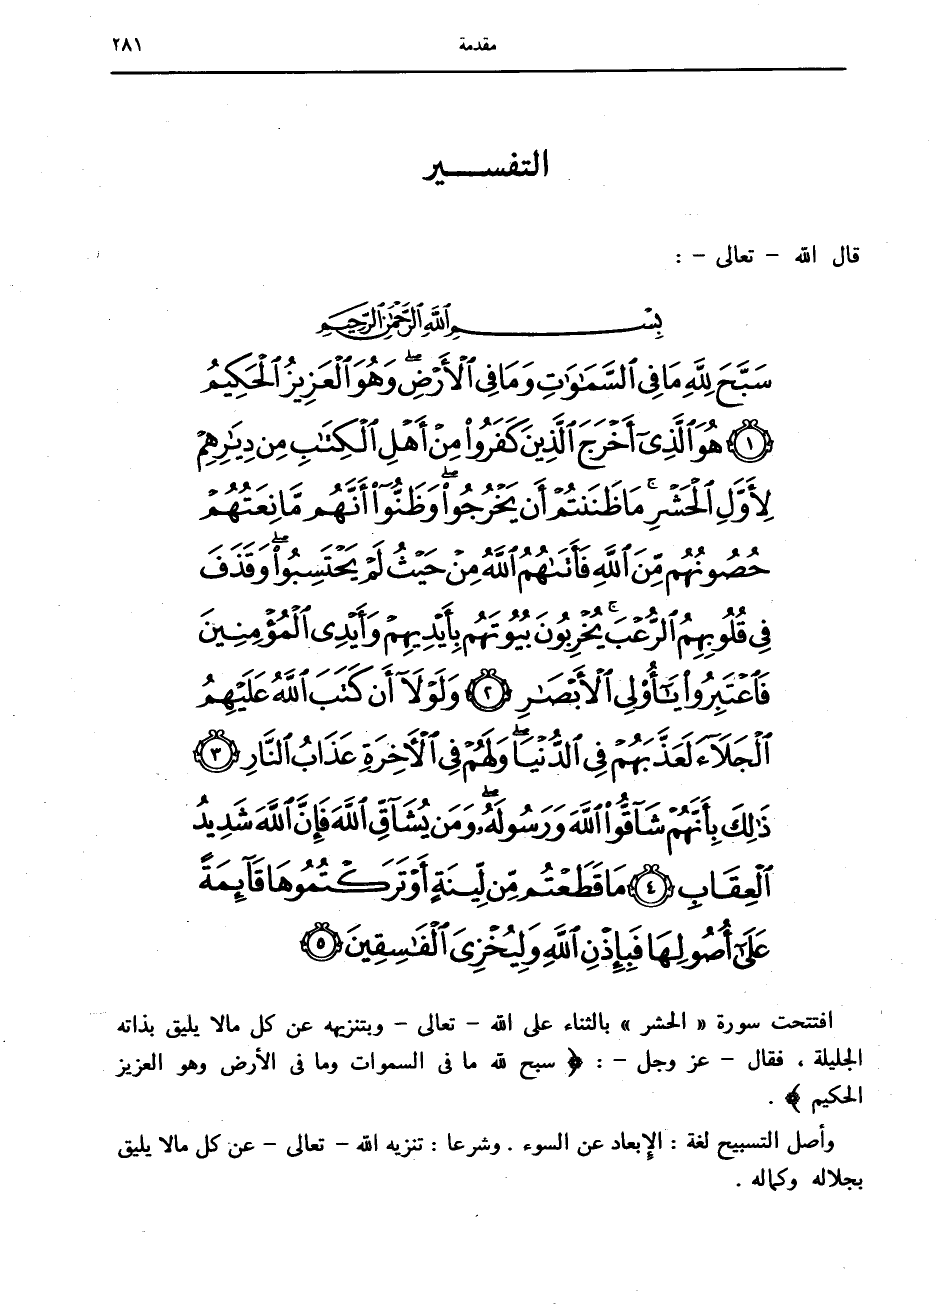 مقدمة ٢٨١
التفســـير
قال الله – تعالى – :
بِسْـــــــمِ ٱللَّهِ ٱلرَّحْمَٰنِ ٱلرَّحِيمِ
سَبَّحَ لِلَّهِ مَا فِى ٱلسَّمَٰوَٰتِ وَمَا فِى ٱلْأَرْضِ ۖ وَهُوَ ٱلْعَزِيزُ ٱلْحَكِيمُ
﴿١﴾ هُوَ ٱلَّذِىٓ أَخْرَجَ ٱلَّذِينَ كَفَرُوا۟ مِنْ أَهْلِ ٱلْكِتَٰبِ مِن دِيَٰرِهِمْ
لِأَوَّلِ ٱلْحَشْرِ ۚ مَا ظَنَنتُمْ أَن يَخْرُجُوا۟ ۖ وَظَنُّوٓا۟ أَنَّهُم مَّانِعَتُهُمْ
حُصُونُهُم مِّنَ ٱللَّهِ فَأَتَىٰهُمُ ٱللَّهُ مِنْ حَيْثُ لَمْ يَحْتَسِبُوا۟ ۖ وَقَذَفَ
فِى قُلُوبِهِمُ ٱلرُّعْبَ ۚ يُخْرِبُونَ بُيُوتَهُم بِأَيْدِيهِمْ وَأَيْدِى ٱلْمُؤْمِنِينَ
فَٱعْتَبِرُوا۟ يَٰٓأُو۟لِى ٱلْأَبْصَٰرِ ﴿٢﴾ وَلَوْلَآ أَن كَتَبَ ٱللَّهُ عَلَيْهِمُ
ٱلْجَلَآءَ لَعَذَّبَهُمْ فِى ٱلدُّنْيَا ۖ وَلَهُمْ فِى ٱلْءَاخِرَةِ عَذَابُ ٱلنَّارِ ﴿٣﴾
ذَٰلِكَ بِأَنَّهُمْ شَآقُّوا۟ ٱللَّهَ وَرَسُولَهُۥ ۖ وَمَن يُشَآقِّ ٱللَّهَ فَإِنَّ ٱللَّهَ شَدِيدُ
ٱلْعِقَابِ ﴿٤﴾ مَا قَطَعْتُم مِّن لِّينَةٍ أَوْ تَرَكْتُمُوهَا قَآئِمَةً
عَلَىٰٓ أُصُولِهَا فَبِإِذْنِ ٱللَّهِ وَلِيُخْزِىَ ٱلْفَٰسِقِينَ ﴿٥﴾
افتتحت سورة « الحشر » بالثناء على الله – تعالى – وبتنزيهه عن كل مالا يليق بذاته
الجليلة ، فقال – عز وجل – : ﴿ سبح لله ما فى السموات وما فى الأرض وهو العزيز
الحكيم ﴾ .
وأصل التسبيح لغة : الإبعاد عن السوء . وشرعا : تنزيه الله – تعالى – عن كل مالا يليق
بجلاله وكماله .